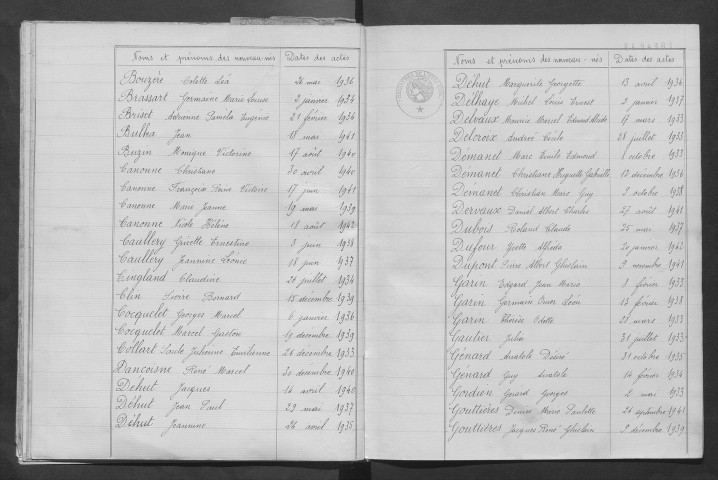 Noms et prénoms des nouveau-nés Dates des actes
Bouzéré Colette Léa 26 mai 1936
Brassart Germaine Marie Louise 2 janvier 1934
Briset Adrienne Paméla Eugénie 21 février 1936
Bulka Jean 18 mai 1941
Buzin Monique Victorine 17 août 1940
Canonne Christiane 30 avril 1940
Canonne François Victoire 17 juin 1941
Canonne Marie Jeanne 19 mai 1939
Canonne Nicole Hélène 18 août 1942
Caullery Ginette Ernestine 3 juin 1938
Caullery Jeannine Léonie 18 juin 1937
Claudine 26 juillet 1934
Clin Pierre Bernard 15 décembre 1939
Cocquelet Georges Marcel 6 janvier 1936
Cocquelet Marcel Gaston 19 décembre 1939
Collart Paule Julienne Emilienne 26 décembre 1933
Dancoisne René Marcel 30 décembre 1940
Déhut Jacques 14 avril 1940
Déhut Jean Paul 29 mai 1937
Déhut Jeannine 26 avril 1935
Noms et prénoms des nouveau-nés Dates des actes
Déhut Marguerite Georgette 13 avril 1934
Delhaye Michel Louis Ernest 2 janvier 1937
Delvaux Maurice Marcel Edmond 17 mars 1933
Delcroix Andrée Cécile 28 juillet 1935
Démanel Marc Emile Edmond 1 octobre 1933
Démanel Christiane Huguette Gabrielle 12 décembre 1936
Démanel Christian Marc Guy 2 octobre 1938
Dervaux Daniel Albert Charles 27 août 1941
Dubois Roland Claude 25 mai 1937
Dufour Yvette Alfréda 20 janvier 1942
Dupont Pierre Albert Ghislain 9 novembre 1941
Garin Edgard Jean Marie 8 février 1933
Garin Germain Omer Léon 13 février 1938
Garin Thérèse Odette 28 mars 1933
Gautier Julia 31 juillet 1933
Génard Anatole Désiré 31 octobre 1935
Génard Guy Anatole 14 février 1934
Gordien Gérard Georges 2 mai 1933
Gouttières Denise Marie Paulette 26 septembre 1941
Gouttières Jacques René Ghislain 2 décembre 1939